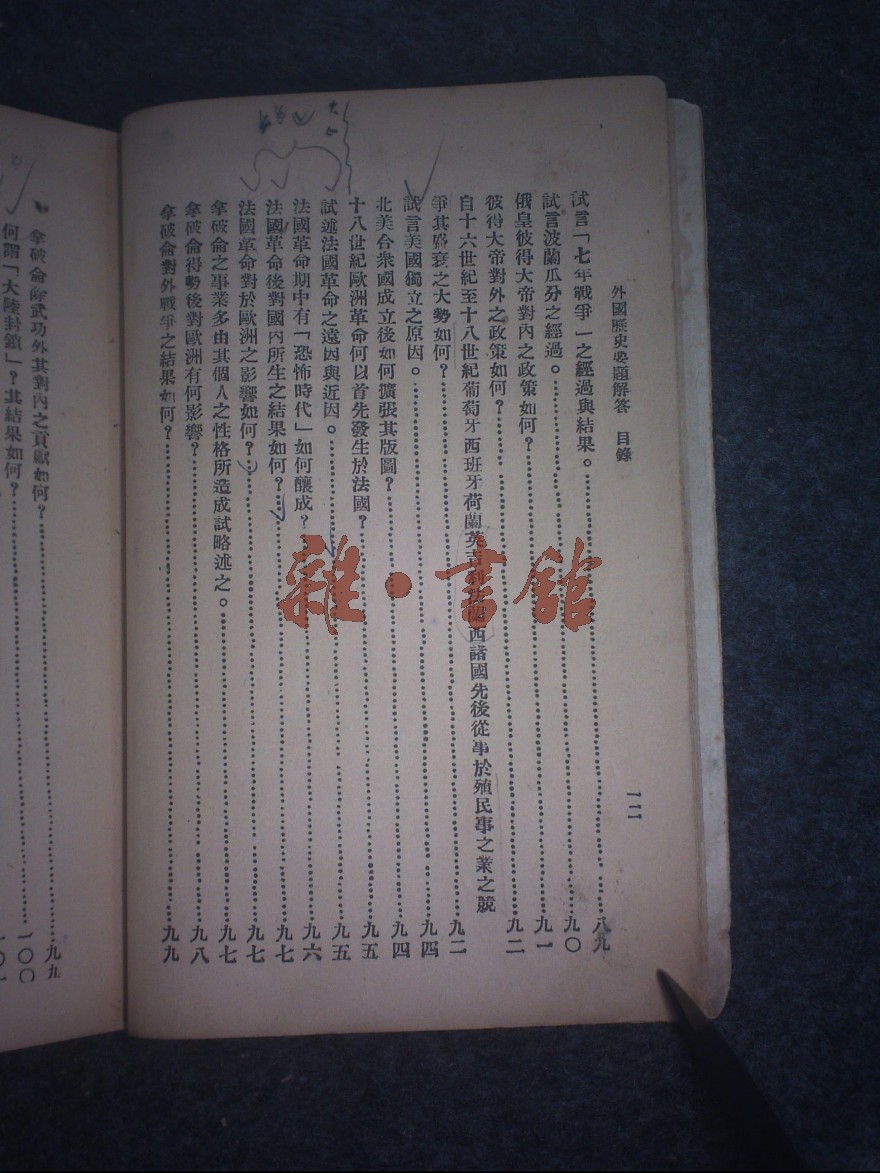 外國歷史要題解答 目錄
一二
試言「七年戰爭」之經過與結果。 八九
試言波蘭瓜分之經過。 九〇
俄皇彼得大帝對內之政策如何？ 九一
彼得大帝對外之政策如何？ 九二
自十六世紀至十八世紀葡萄牙西班牙荷蘭英吉利法蘭西諸國先後從事於殖民事之業之競
爭其盛衰之大勢如何？ 九二
試言美國獨立之原因。 九四
北美合衆國成立後如何擴張其版圖？ 九四
十八世紀歐洲革命何以首先發生於法國？ 九五
試述法國革命之遠因與近因。 九五
法國革命期中有「恐怖時代」如何釀成？ 九六
法國革命後對國內所生之結果如何？ 九七
法國革命對於歐洲之影響如何？ 九七
拿破侖之事業多由其個人之性格所造成試略述之。 九七
拿破侖得勢後對歐洲有何影響？ 九八
拿破侖對外戰爭之結果如何？ 九九
拿破侖除武功外其對內之貢獻如何？ 九九
何謂「大陸封鎖」？其結果如何？ 一〇〇
雜·書館